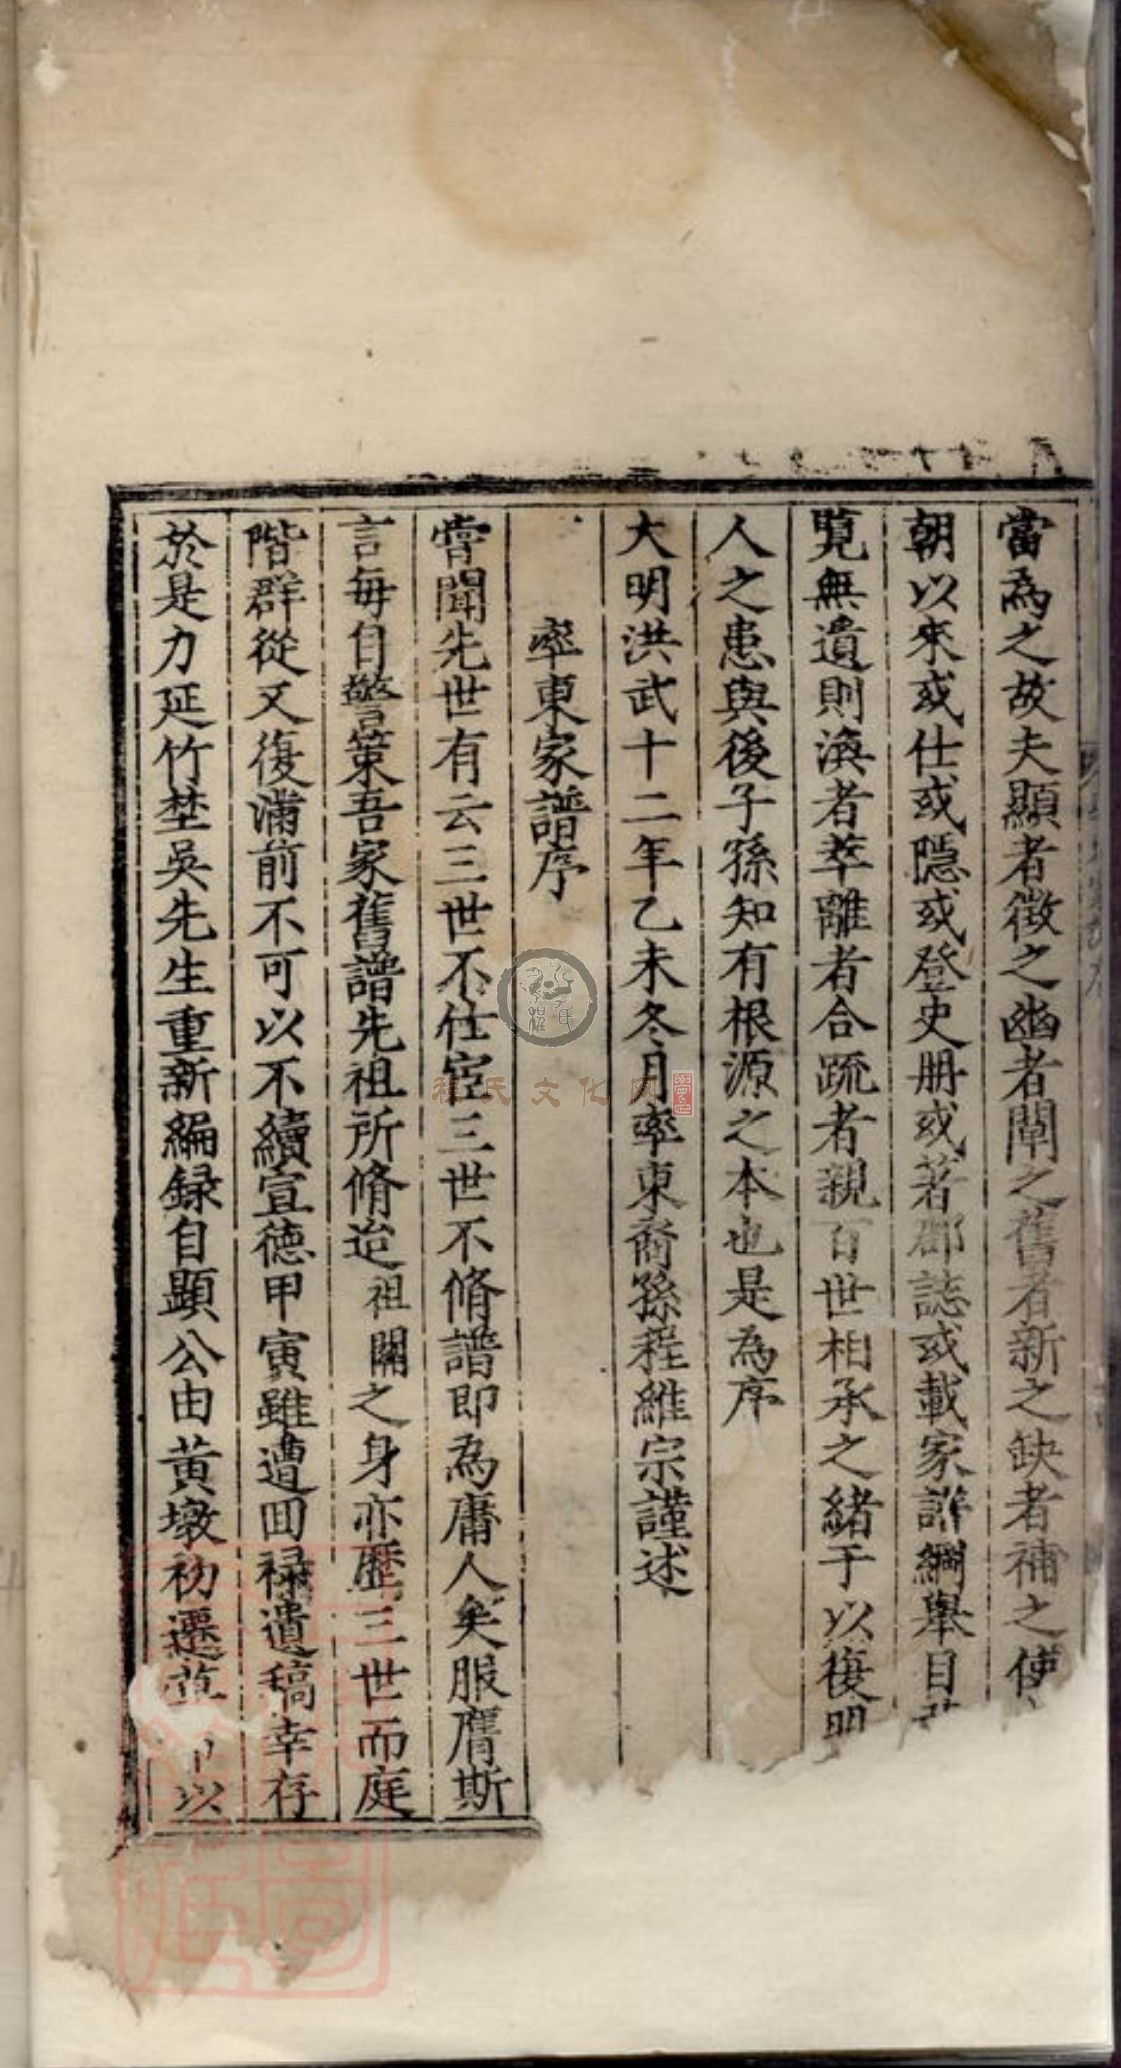 當為之故夫顯者徴之幽者闡之舊者新之缺者補之使
朝以來或仕或隠或登史册或著郡誌或載家譜綱舉目
覧無遺則渙者萃離者合疏者親百世相承之緒于以復明
人之患與後子孫知有根源之本也是為序
大明洪武十二年乙未冬月率東裔孫程維宗謹述
率東家譜序
甞聞先世有云三世不仕宦三世不脩譜即為庸人矣服膺斯
言每自警策吾家舊譜先祖所脩迨祖關之身亦歷三世而庭
階群從又復滿前不可以不續宣德甲寅雖遭回禄遺稿幸存
於是力延竹埜吳先生重新編録自顕公由黄墩初遷草以
程氏文化网